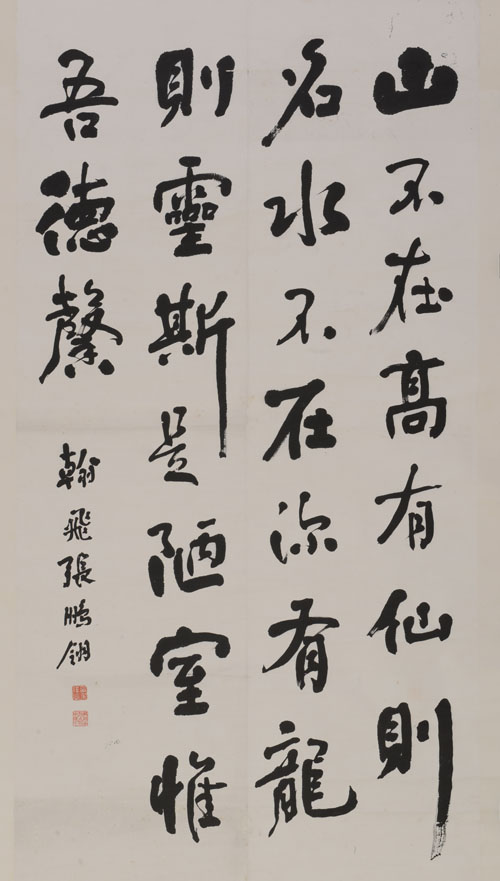 山不在高有仙則
名水不在深有龍
則靈斯是陋室惟
吾德馨
翰飛張鵬翎